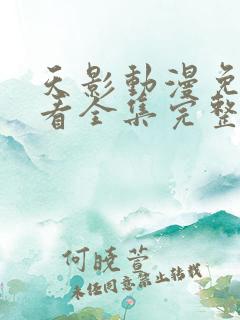 天影動漫免
看全集完整
何曉萱
未经同意禁止转载